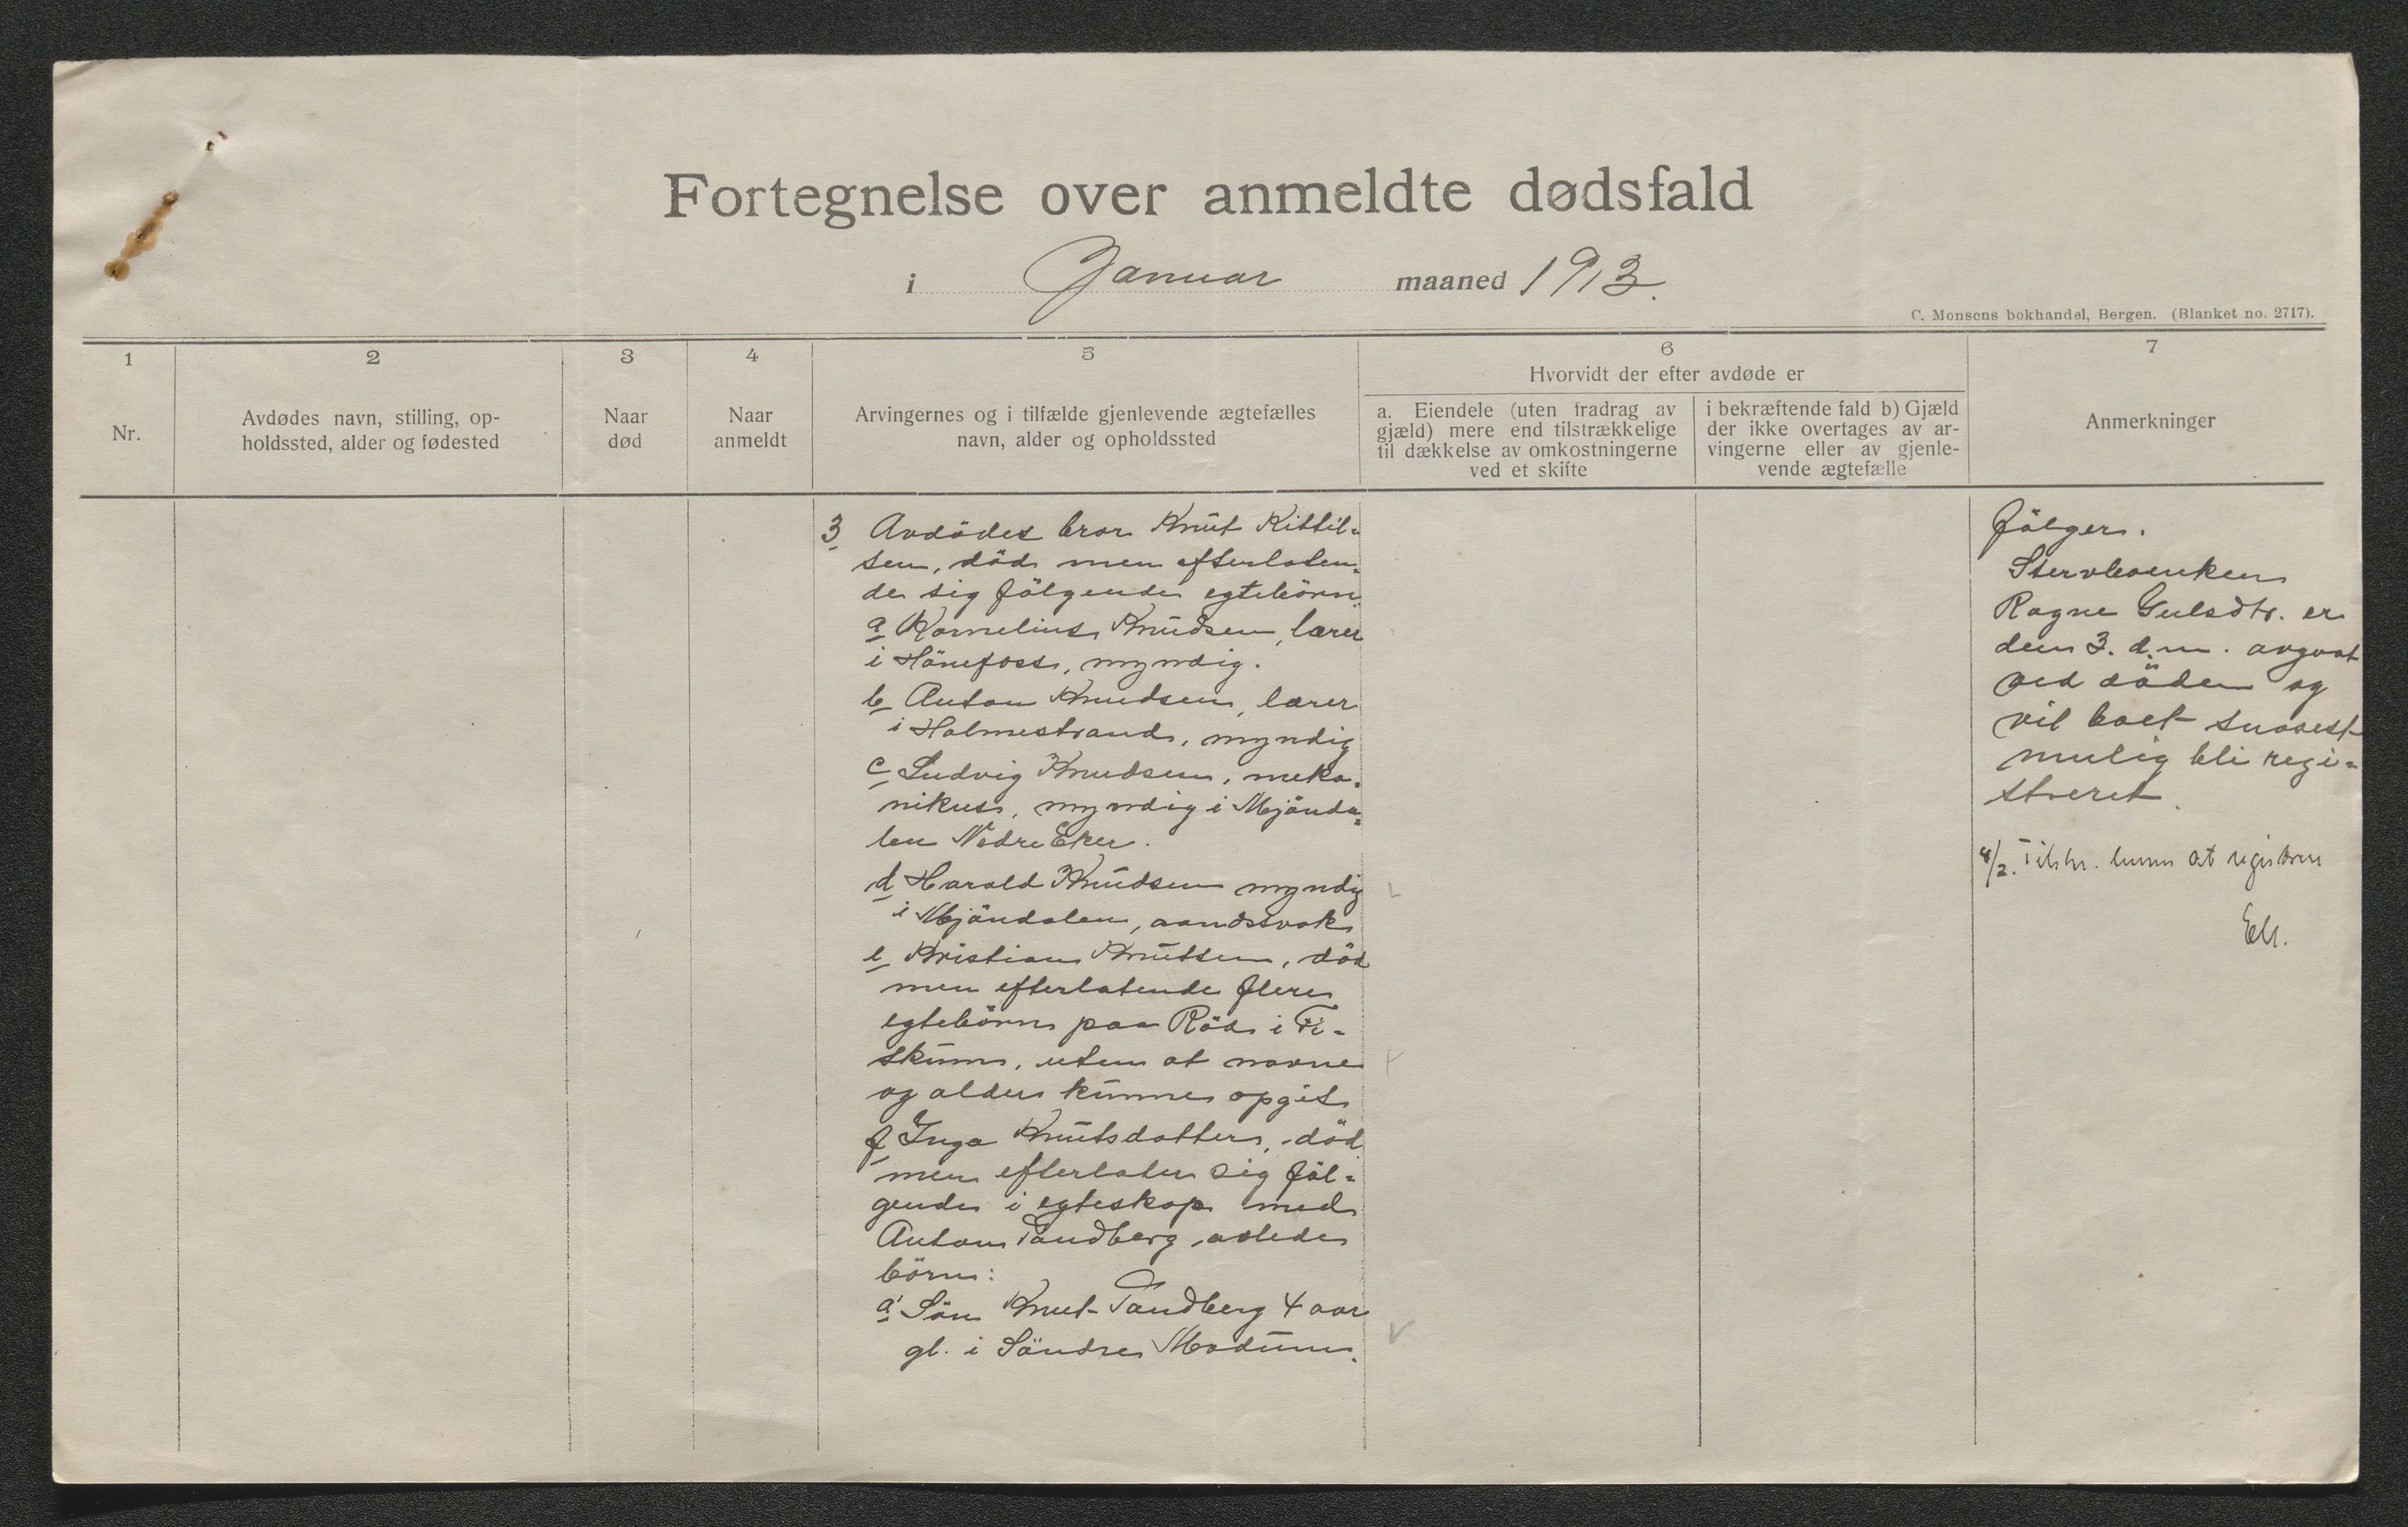 Fortegnelse over anmeldte dødsfald
i Januar maaned 1913.
C. Monsens bokhandel, Bergen. (Blanket no. 2717).
1
Nr.
2
Avdødes navn, stilling, op-
holdssted, alder og fødested
3
Naar
død
4
Naar
anmeldt
5
Arvingernes og i tilfælde gjenlevende ægtefælles
navn, alder og opholdssted
6
Hvorvidt der efter avdøde er
a. Eiendele (uten fradrag av
gjæld) mere end tilstrækkelige
til dækkelse av omkostningerne
ved et skifte
i bekræftende fald b) Gjæld
der ikke overtages av ar-
vingerne eller av gjenle-
vende ægtefælle
7
Anmerkninger
3 Avdödes bror Knut Kittil-
sen, död men efterlaten-
de sig fölgende egtebörn:
a Kornelius Knudsen, lærer
i Hönefoss, myndig.
b Anton Knudsen, lærer
i Holmestrand, myndig
c Ludvig Knudsen, meka-
nikus, myndig i Mjönda-
len Nedre Eker.
d Harald Knudsen myndig
i Mjöndalen, aandssvak
e Kristian Knutsen, död
men efterlatende flere
egtebörn paa Röd i Fi-
skum, uten at navne
og alder kunne opgis
f Inga Knutsdatter, död
men efterlater sig föl-
gende i egteskap med
Anton Tandberg avlede
börn:
a' Sön Knut Tandberg 4 aar
gl. i Söndre Modum.
fölger.
Stervboenken
Ragne Gulsdtr. er
den 3. d.m. avgaat
ved döden og
vil boet snarest
mulig bli regi-
streret.
8/2. Tilskr. lensm at registrere